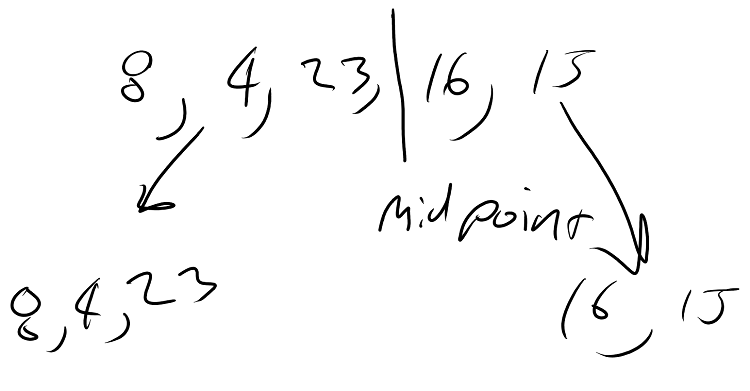 8, 4, 23, 16, 15
midpoint
8, 4, 23
16, 15